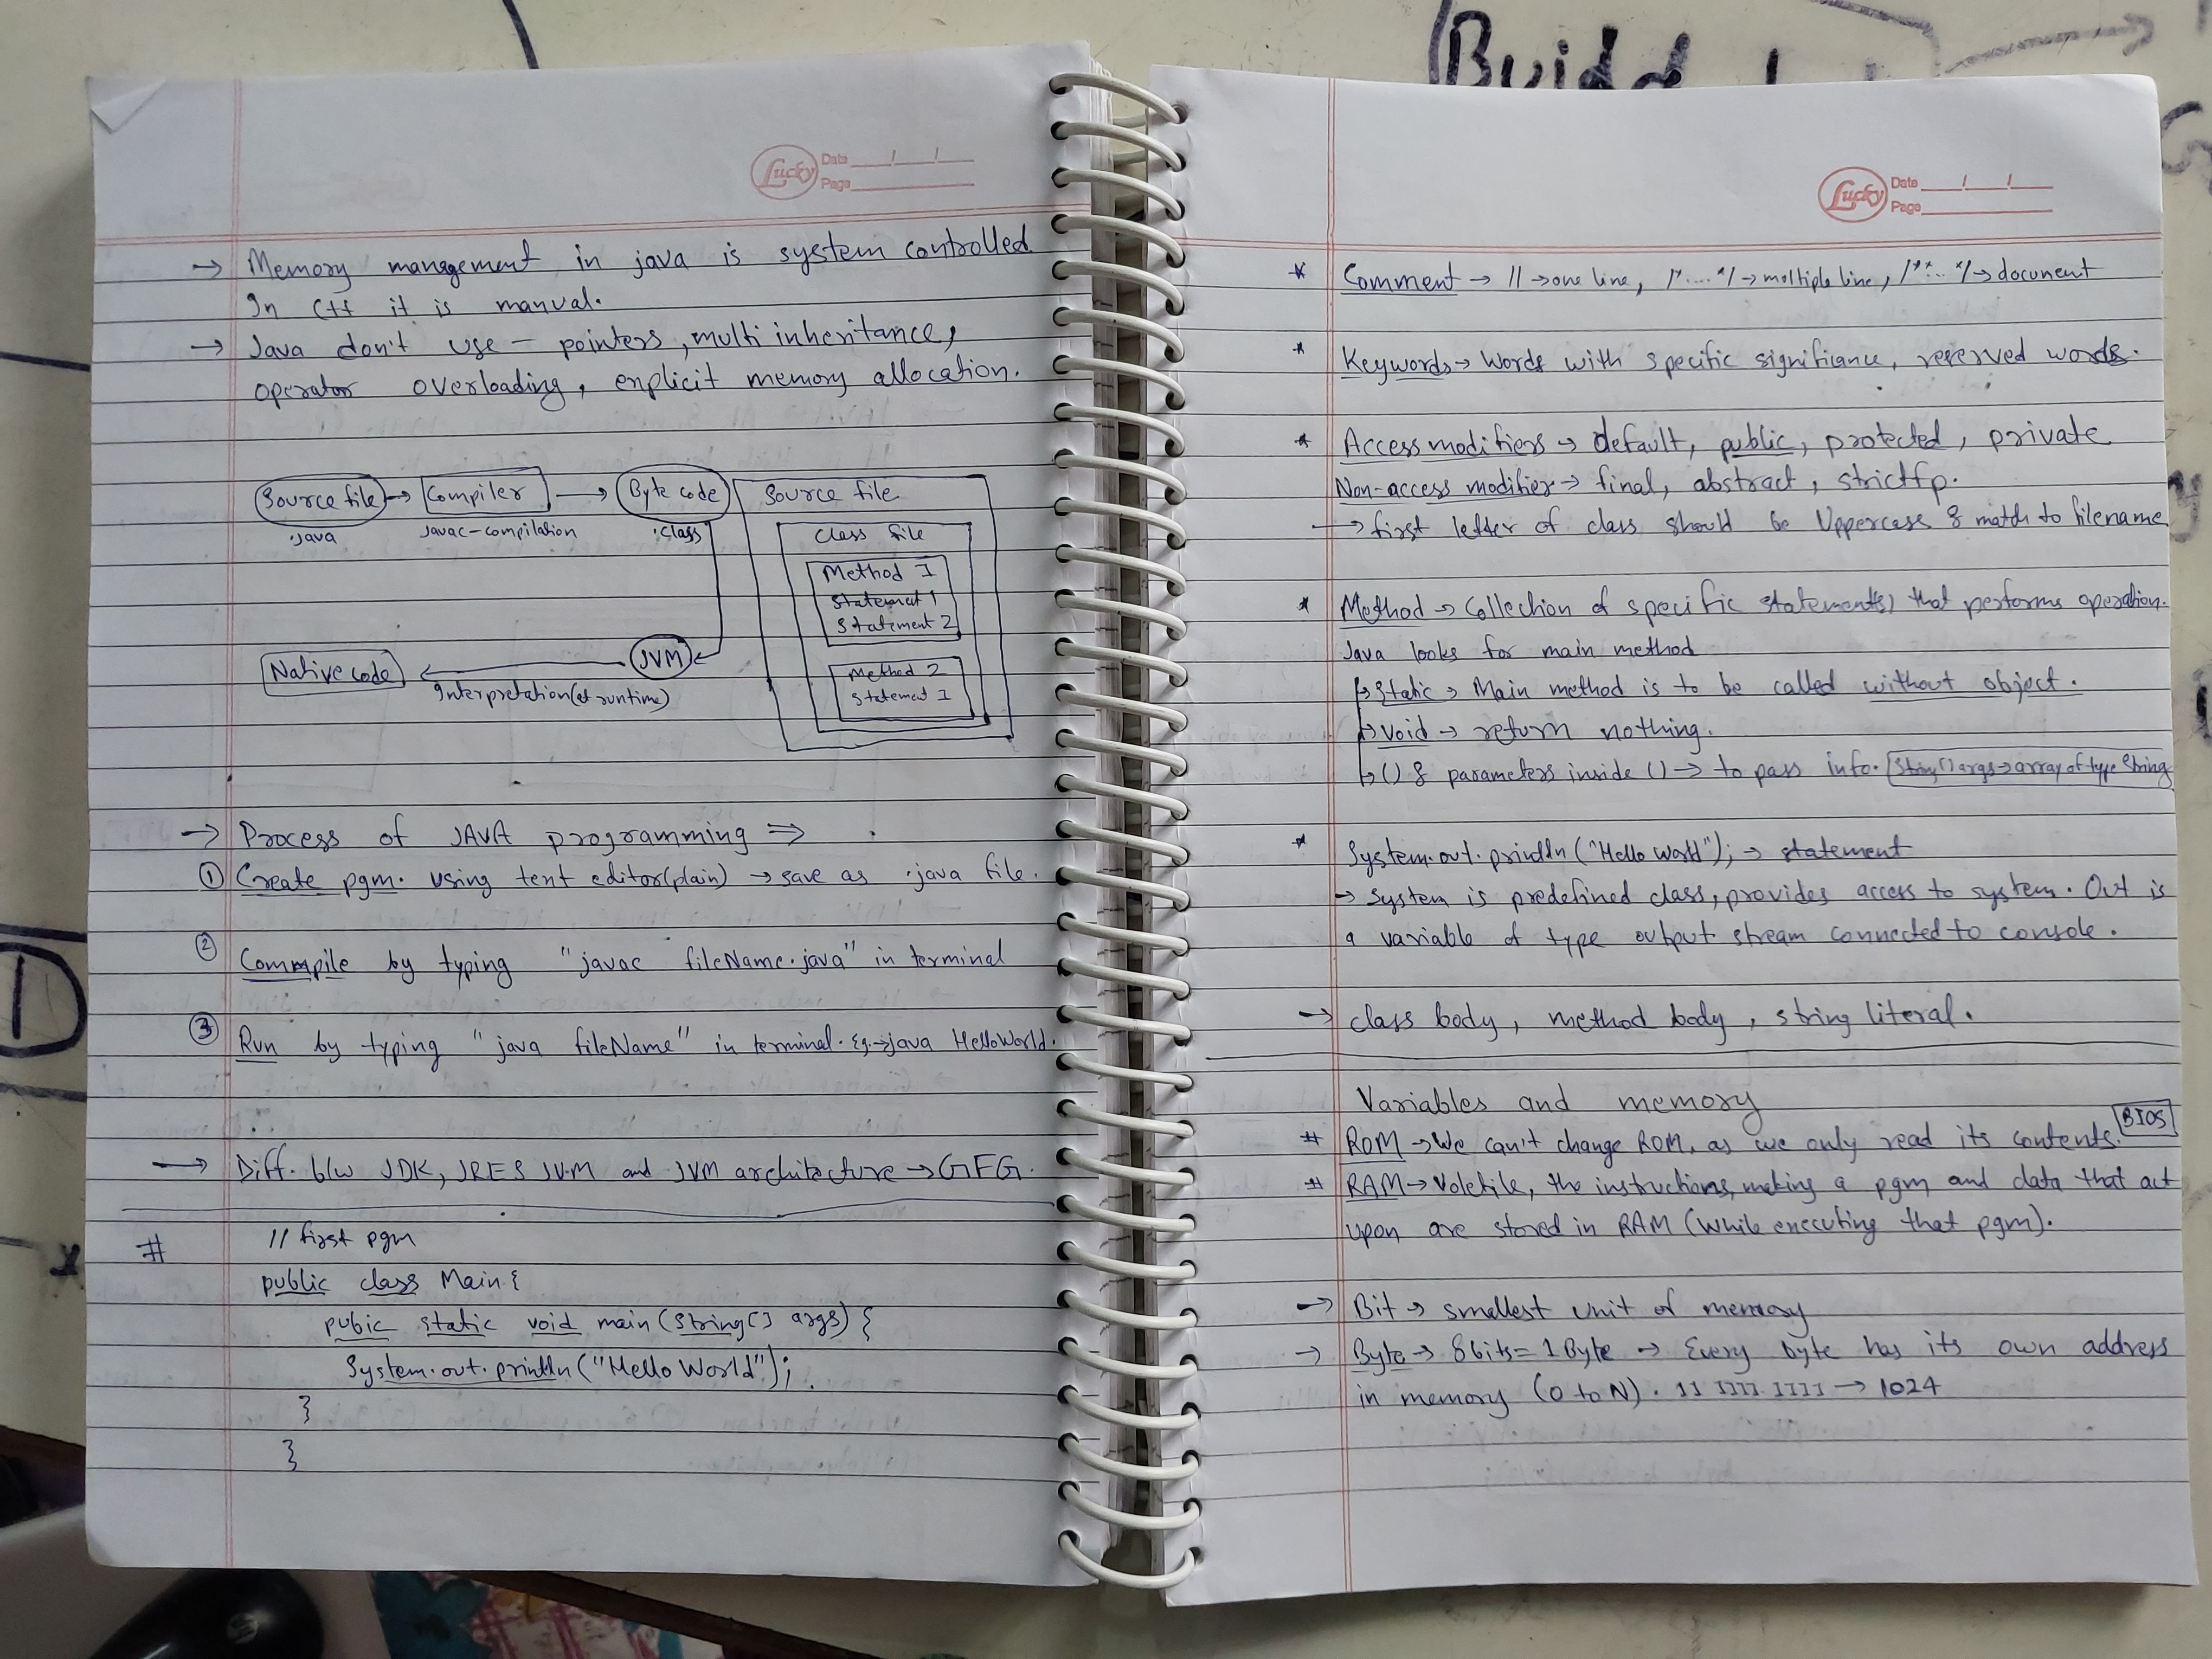 Build
Lucky Date / /
Page
→ Memory management in java is system controlled
In C++ it is manual.
→ Java don't use - pointers, multi inheritance,
operator overloading, explicit memory allocation.
Source file → Compiler → Byte code
.java javac-compilation .class
Source file
Class file
Method 1
Statement 1
Statement 2
Method 2
Statement 1
Native code ← JVM
Interpretation (at runtime)
→ Process of JAVA programming ⇒
① Create pgm. using text editor(plain) → save as .java file.
② Commpile by typing "javac fileName.java" in terminal
③ Run by typing "java fileName" in terminal. Eg.→java HelloWorld.
→ Diff. b/w JDK, JRE & JVM and JVM architecture → GFG.
# // first pgm
public class Main {
pubic static void main (String[] args) {
System.out.println ("Hello World");
}
}
Lucky Date / /
Page
* Comment → // → one line, /*....*/ → moltiple line, /**...*/ → document
* Keywords → Words with specific significance, reserved words.
* Access modifiers → default, public, protected, private
Non-access modifier → final, abstract, strictfp.
→ first letter of class should be Uppercase & match to filename
* Method → Collection of specific statement(s) that performs operation.
Java looks for main method
↳ Static → Main method is to be called without object.
↳ void → return nothing.
↳ () & parameters inside () → to pass info. String[] args → array of type String
* System.out.println ("Hello World"); → statement
→ System is predefined class, provides access to system. Out is
a variable of type output stream connected to console.
→ class body, method body, string literal.
Variables and memory
# ROM → We can't change ROM, as we only read its contents. BIOS
# RAM → Voletile, the instructions, making a pgm and data that act
upon are stored in RAM (while executing that pgm).
→ Bit → smallest unit of memory
→ Byte → 8bits = 1 Byte → Every byte has its own address
in memory (0 to N). 11 1111 1111 → 1024
1